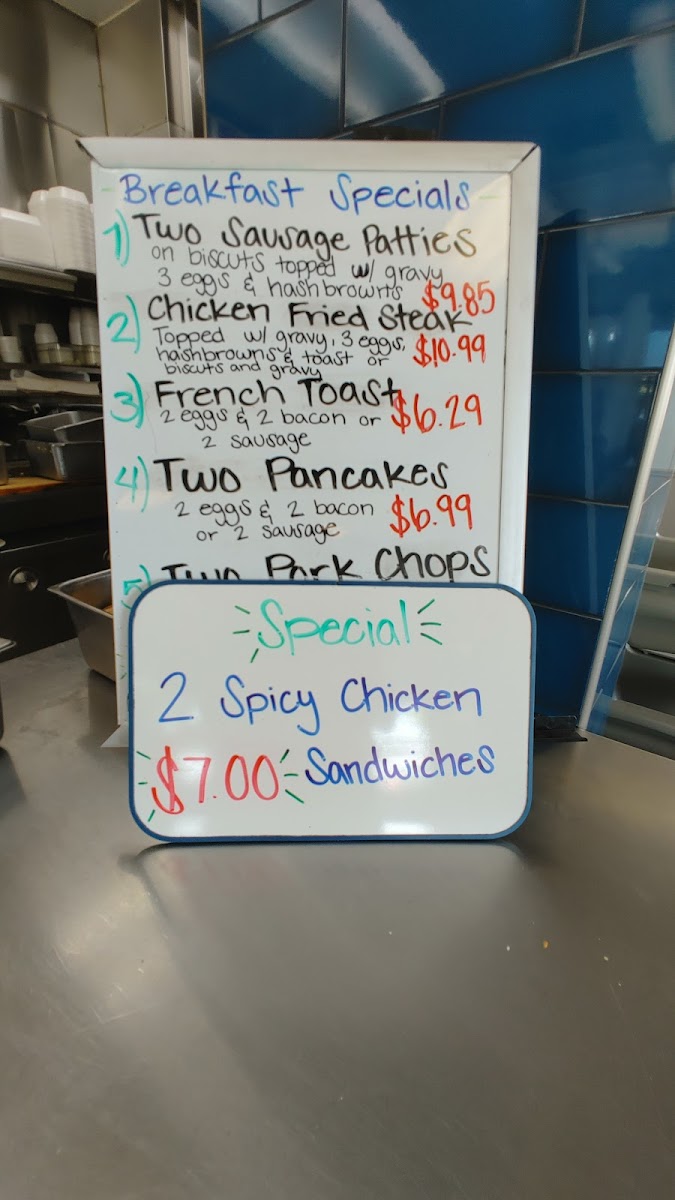 Breakfast Specials
1) Two Sausage Patties
on biscuts topped w/ gravy
3 eggs & hashbrowns $9.85
2) Chicken Fried Steak
Topped w/ gravy, 3 eggs,
hashbrowns & toast or $10.99
biscuts and gravy
3) French Toast
2 eggs & 2 bacon or $6.29
2 sausage
4) Two Pancakes
2 eggs & 2 bacon $6.99
or 2 sausage
5) Two Pork Chops
Special
2 Spicy Chicken
$7.00 Sandwiches